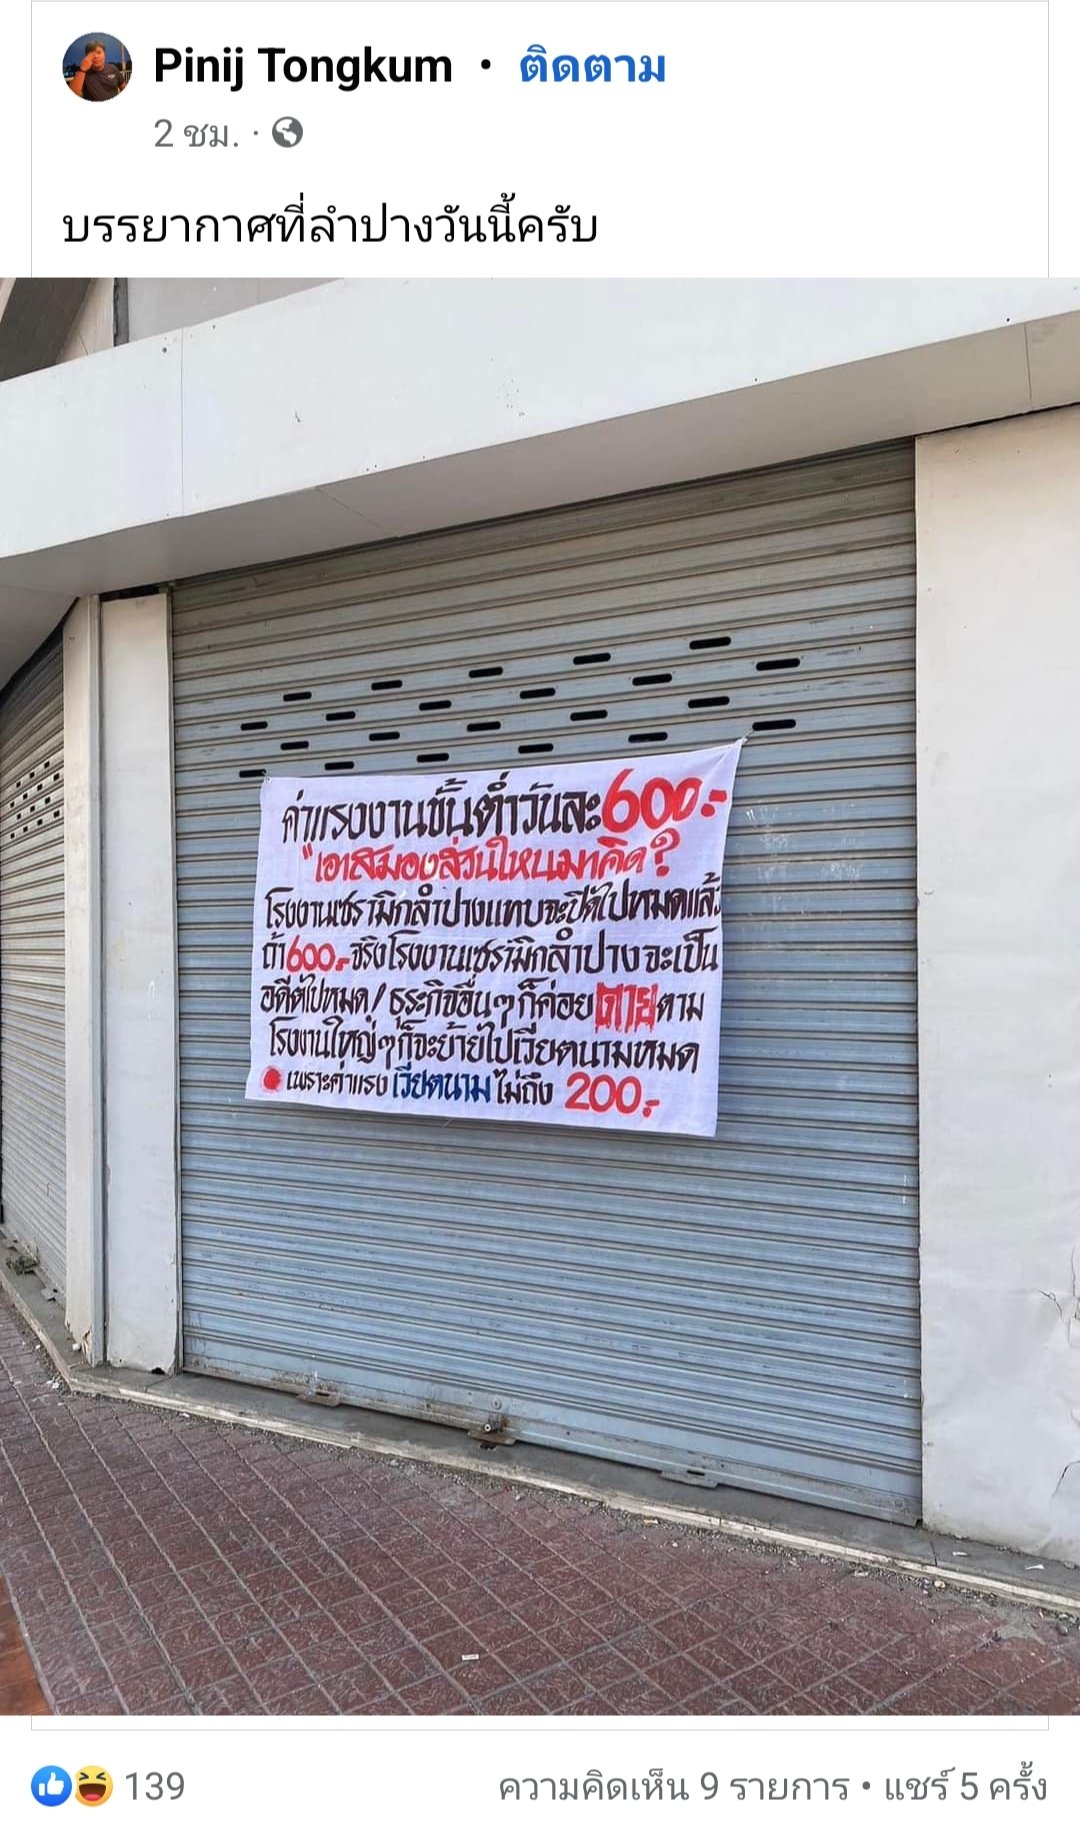 Pinij Tongkum • ติดตาม
2 ชม. ·
บรรยากาศที่ลำปางวันนี้ครับ
ค่าแรงงานขั้นต่ำวันละ600.-
"เอาสมองส่วนไหนมาคิด?
โรงงานเซรามิกลำปางแทบจะปิดไปหมดแล้ว
ถ้า600.-จริงโรงงานเซรามิกลำปางจะเป็น
อดีตไปหมด! ธุระกิจอื่นๆก็ค่อยตายตาม
โรงงานใหญ่ๆก็จะย้ายไปเวียตนามหมด
เพราะค่าแรงเวียตนามไม่ถึง 200.-
139
ความคิดเห็น 9 รายการ • แชร์ 5 ครั้ง